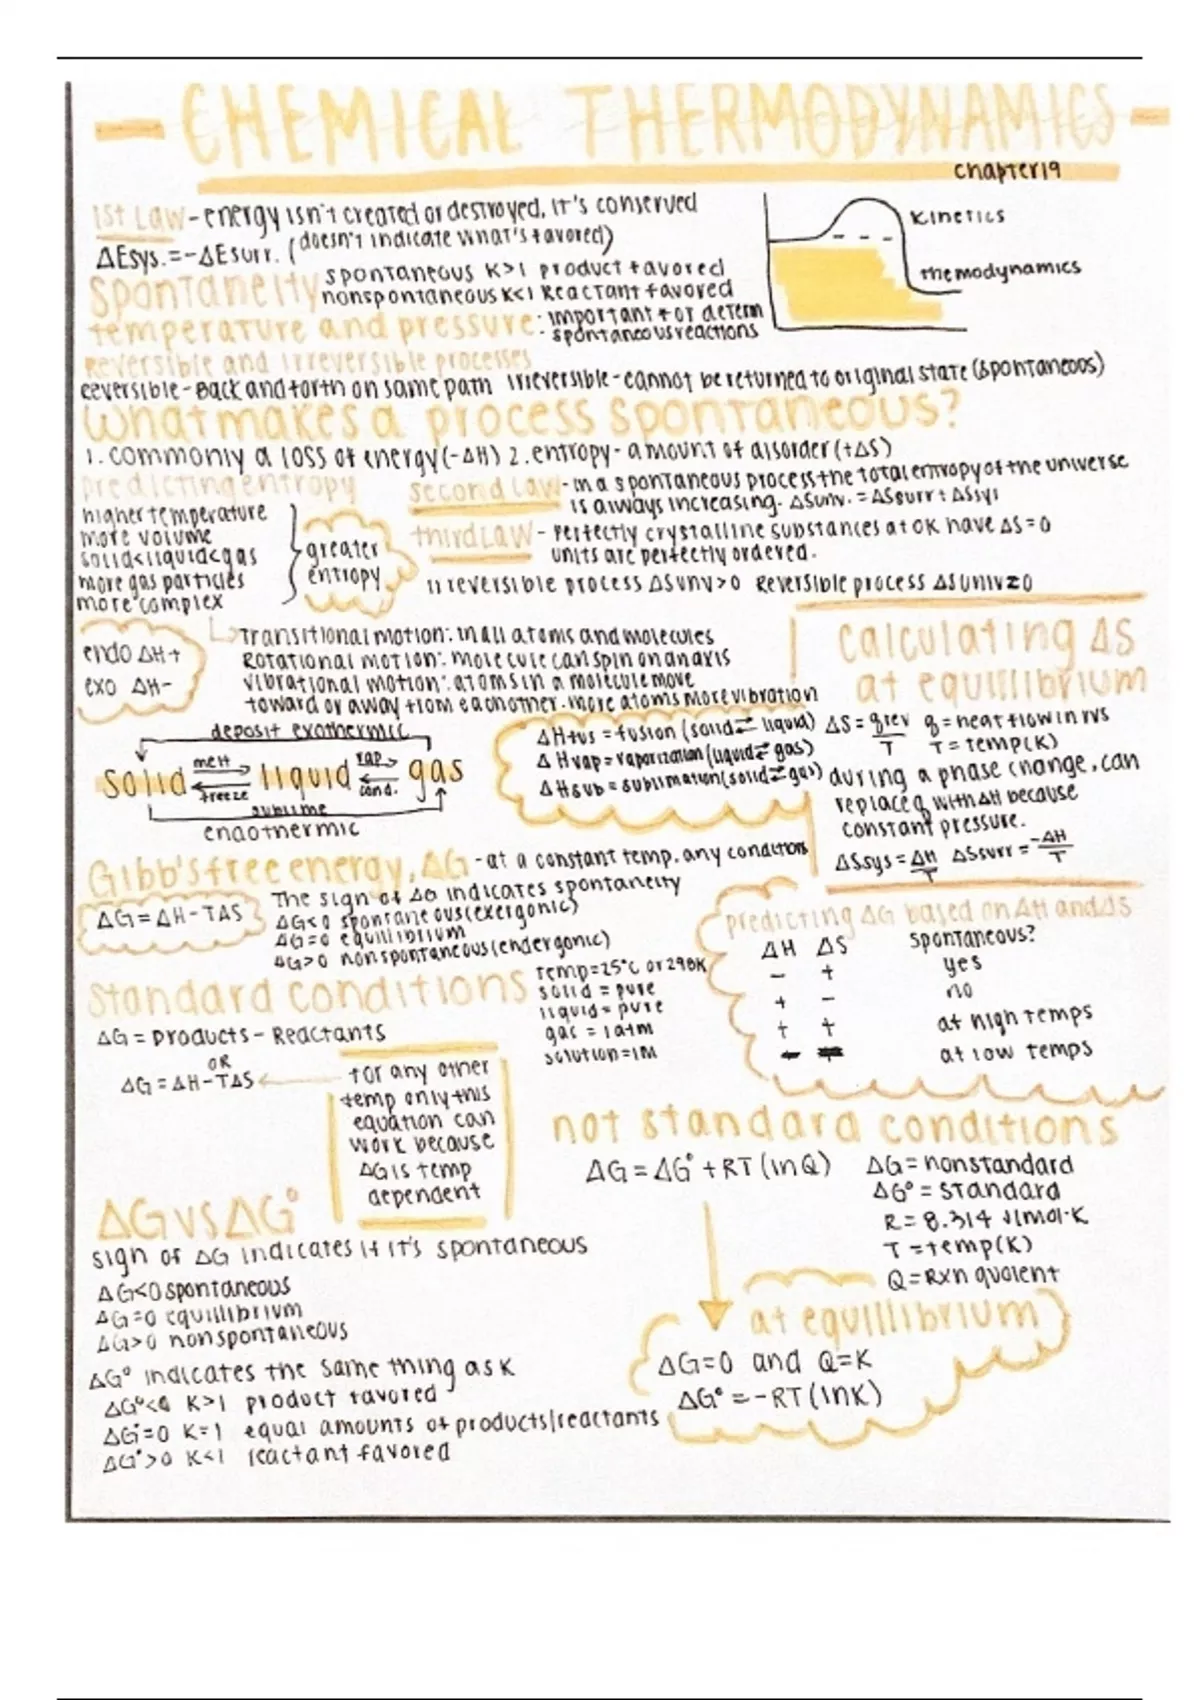 CHEMICAL THERMODYNAMICS
chapter 19
1st Law - energy isn't created or destroyed, it's conserved
ΔEsys. = -ΔEsurr. (doesn't indicate what's favored)
Kinetics
Themodynamics
Spontaneity spontaneous K>1 product favored
nonspontaneous K<1 Reactant favored
temperature and pressure · important for determ
· spontaneous reactions
Reversible and irreversible processes
Reversible - Back and forth on same path irreversible - cannot be returned to original state (spontaneous)
What makes a process spontaneous?
1. commonly a loss of energy (-ΔH) 2. entropy - amount of disorder (+ΔS)
predicting entropy
higher temperature
more volume
solid<liquid<gas
more gas particles
more complex
greater
entropy
second law - in a spontaneous process the total entropy of the universe
is always increasing. ΔSunv. = ΔSsurr + ΔSsys
third LAW - Perfectly crystalline substances at 0K have ΔS=0
units are perfectly ordered.
irreversible process ΔSunv>0 Reversible process ΔSuniv=0
endo ΔH+
exo ΔH-
Transitional motion: in all atoms and molecules
Rotational motion: molecule can spin on an axis
vibrational motion: atoms in a molecule move
toward or away from each other. more atoms more vibration
deposit exothermic
solid melt freeze liquid vap cond. gas
sublime
endothermic
ΔHfus = fusion (solid⇄liquid)
ΔHvap = vaporization (liquid⇄gas)
ΔHsub = sublimation (solid⇄gas)
calculating ΔS
at equillibrium
ΔS = qrev/T q = heat flow in rvs
T = temp(K)
during a phase change, can
replace q with ΔH because
constant pressure.
ΔSsys = ΔH/T ΔSsurr = -ΔH/T
Gibb's free energy, ΔG - at a constant temp. any conditions
ΔG = ΔH - TΔS
The sign of ΔG indicates spontaneity
ΔG<0 spontaneous (exergonic)
ΔG=0 equilibrium
ΔG>0 nonspontaneous (endergonic)
predicting ΔG based on ΔH and ΔS
ΔH ΔS spontaneous?
- + yes
+ - no
+ + at high temps
- - at low temps
standard conditions
Temp=25°C or 298K
solid = pure
liquid = pure
gas = 1atm
solution = 1M
ΔG = Products - Reactants
OR
ΔG = ΔH - TΔS
for any other
temp only this
equation can
work because
ΔG is temp
dependent
not standard conditions
ΔG = ΔG° + RT (lnQ)
ΔG = nonstandard
ΔG° = standard
R = 8.314 J/mol·K
T = temp(K)
Q = Rxn quoient
ΔG vs ΔG°
sign of ΔG indicates if it's spontaneous
ΔG<0 spontaneous
ΔG=0 equillibrium
ΔG>0 nonspontaneous
ΔG° indicates the same thing as K
ΔG°<0 K>1 product favored
ΔG°=0 K=1 equal amounts of products/reactants
ΔG°>0 K<1 reactant favored
at equillibrium
ΔG=0 and Q=K
ΔG° = -RT (lnK)